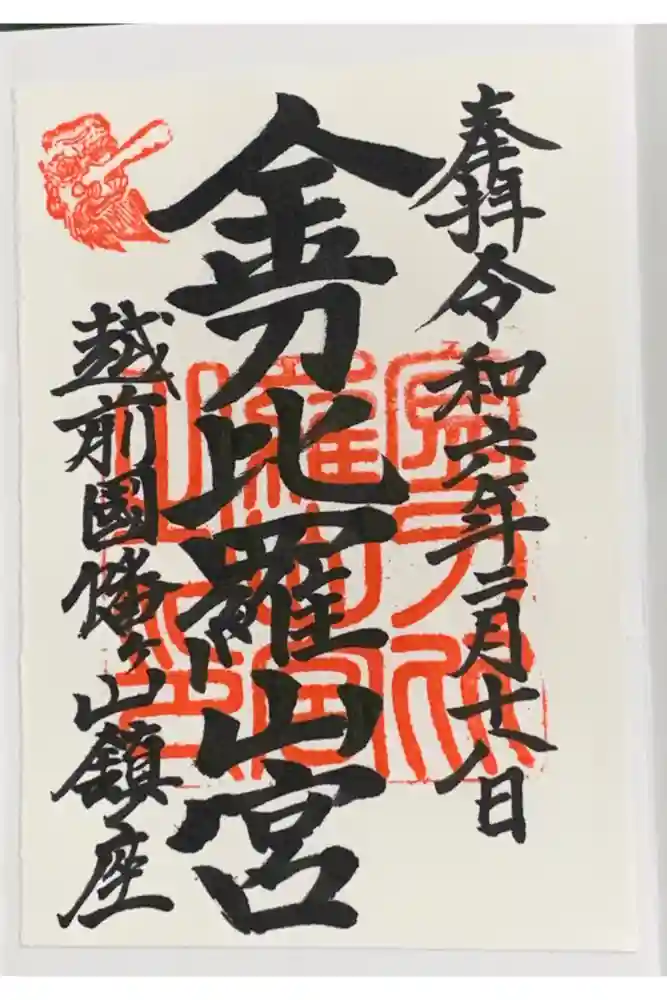 奉拝 令和六年二月十八日
金刀比羅山宮
越前國幡ヶ山鎮座